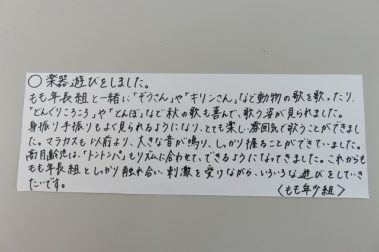 ○楽器遊びをしました。
もも年長組と一緒に「ぞうさん」や「キリンさん」など動物の歌を歌ったり、
「どんぐりころころ」や「とんぼ」など秋の歌も喜んで、歌う姿が見られました。
身振り手振りもよく見られるようになり、とても楽しい雰囲気で歌うことができまし
た。マラカスも以前より、大きな音が鳴り、しっかり握ることができていました。
高月齢児は、「トントンパ」もリズムに合わせて、できるようになってきました。これからも
もも年長組としっかり触れ合い刺激を受けながら、いろいろな遊びをしていき
たいです。
〈もも年少組〉